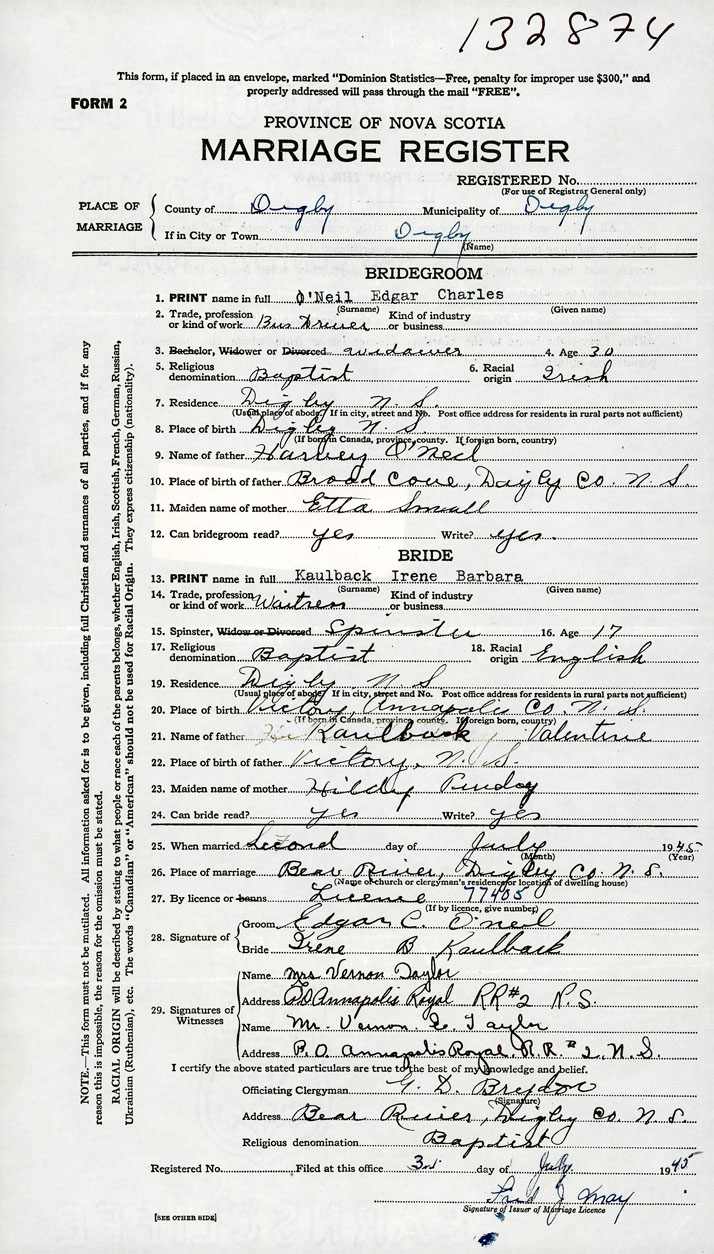 132874
This form, if placed in an envelope, marked "Dominion Statistics—Free, penalty for improper use $300," and
properly addressed will pass through the mail "FREE".
FORM 2
PROVINCE OF NOVA SCOTIA
MARRIAGE REGISTER
REGISTERED No.
(For use of Registrar General only)
PLACE OF MARRIAGE
County of Digby Municipality of Digby
If in City or Town Digby
(Name)
BRIDEGROOM
1. PRINT name in full O'Neil Edgar Charles
(Surname) (Given name)
2. Trade, profession or kind of work Bus Driver Kind of industry or business
3. Bachelor, Widower or Divorced widower 4. Age 30
5. Religious denomination Baptist 6. Racial origin Irish
7. Residence Digby N. S.
(Usual place of abode. If in city, street and No. Post office address for residents in rural parts not sufficient)
8. Place of birth Digby N. S.
(If born in Canada, province, county. If foreign born, country)
9. Name of father Harvey O'Neil
10. Place of birth of father Broad Cove, Digby Co. N. S.
11. Maiden name of mother Etta Small
12. Can bridegroom read? yes Write? yes.
BRIDE
13. PRINT name in full Kaulback Irene Barbara
(Surname) (Given name)
14. Trade, profession or kind of work Waitress Kind of industry or business
15. Spinster, Widow or Divorced Spinster 16. Age 17
17. Religious denomination Baptist 18. Racial origin English
19. Residence Digby N. S
(Usual place of abode. If in city, street and No. Post office address for residents in rural parts not sufficient)
20. Place of birth Victory, Annapolis Co. N. S.
(If born in Canada, province, county. If foreign born, country)
21. Name of father Kaulback, Valentine
22. Place of birth of father Victory, N. S.
23. Maiden name of mother Hildy
24. Can bride read? yes Write? yes
25. When married Second day of July 1945
(Month) (Year)
26. Place of marriage Bear River, Digby Co. N. S.
(Name of church or clergyman's residence or location of dwelling house)
27. By licence or banns License 77405
(If by licence, give number)
28. Signature of
Groom Edgar C. O'neil
Bride Irene B Kaulback
29. Signatures of Witnesses
Name Mrs Vernon Taylor
Address P.O Annapolis Royal RR#2 N.S.
Name Mr. Vernon E. Taylor
Address P. O. Annapolis Royal. R. R. #2, N. S.
I certify the above stated particulars are true to the best of my knowledge and belief.
Officiating Clergyman G. D.
(Signature)
Address Bear River, Digby Co. N. S.
Religious denomination Baptist
Registered No. Filed at this office 3rd day of July 1945
Fred J May
Signature of Issuer of Marriage Licence
[SEE OTHER SIDE]
NOTE.—This form must not be mutilated. All information asked for is to be given, including full Christian and surnames of all parties, and if for any
reason this is impossible, the reason for the omission must be stated.
RACIAL ORIGIN will be described by stating to what people or race each of the parents belongs, whether English, Irish, Scottish, French, German, Russian,
Ukrainian (Ruthenian), etc. The words "Canadian" or "American" should not be used for Racial Origin. They express citizenship (nationality).